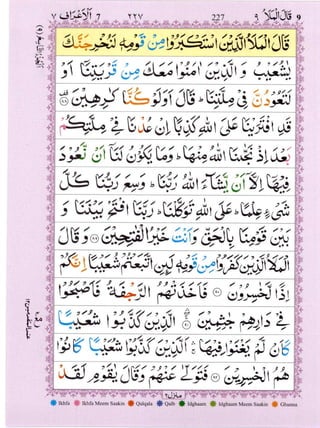 ٧ الأعراف 7
٢٢٧
227
قال الملأ ٩
9
قَالَ الْمَلَاُ الَّذِیْنَ اسْتَكْبَرُوْا مِنْ قَوْمِهٖ لَنُخْرِجَنَّكَ
یٰشُعَیْبُ وَ الَّذِیْنَ اٰمَنُوْا مَعَكَ مِنْ قَرْیَتِنَاۤ اَوْ
لَتَعُوْدُنَّ فِیْ مِلَّتِنَاؕ قَالَ اَوَلَوْ كُنَّا كٰرِهِیْنَ
قَدِ افْتَرَیْنَا عَلَی اللّٰهِ كَذِبًا اِنْ عُدْنَا فِیْ مِلَّتِكُمْ
بَعْدَ اِذْ نَجّٰىنَا اللّٰهُ مِنْهَاؕ وَمَا یَكُوْنُ لَنَاۤ اَنْ نَّعُوْدَ
فِیْهَاۤ اِلَّاۤ اَنْ یَّشَآءَ اللّٰهُ رَبُّنَاؕ وَسِعَ رَبُّنَا كُلَّ
شَیْءٍ عِلْمًاؕ عَلَی اللّٰهِ تَوَكَّلْنَاؕ رَبَّنَا افْتَحْ بَیْنَنَا وَ
بَیْنَ قَوْمِنَا بِالْحَقِّ وَاَنْتَ خَیْرُ الْفٰتِحِیْنَ وَقَالَ
الْمَلَاُ الَّذِیْنَ كَفَرُوْا مِنْ قَوْمِهٖ لَىِٕنِ اتَّبَعْتُمْ شُعَیْبًا اِنَّكُمْ
اِذًا لَّخٰسِرُوْنَ فَاَخَذَتْهُمُ الرَّجْفَةُ فَاَصْبَحُوْا
فِیْ دَارِهِمْ جٰثِمِیْنَ الَّذِیْنَ كَذَّبُوْا شُعَیْبًا
كَاَنْ لَّمْ یَغْنَوْا فِیْهَاۚ اَلَّذِیْنَ كَذَّبُوْا شُعَیْبًا كَانُوْا
هُمُ الْخٰسِرِیْنَ فَتَوَلّٰی عَنْهُمْ وَقَالَ یٰقَوْمِ لَقَدْ
منزل ٢
Ikhfa Ikhfa Meem Saakin Qalqala Qalb Idghaam Idghaam Meem Saakin Ghunna